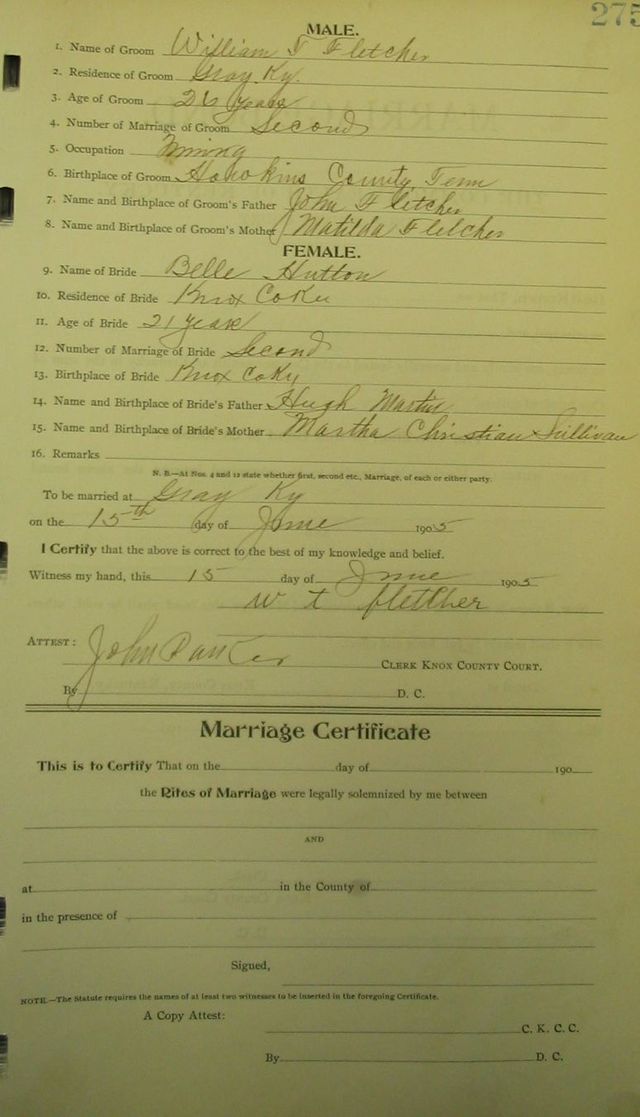 275
MALE.
1. Name of Groom William T Fletcher
2. Residence of Groom Gray Ky.
3. Age of Groom 26 years
4. Number of Marriage of Groom Second
5. Occupation Mining
6. Birthplace of Groom Hawkins County Tenn
7. Name and Birthplace of Groom's Father John Fletcher
8. Name and Birthplace of Groom's Mother Matilda Fletcher
FEMALE.
9. Name of Bride Belle Hutton
10. Residence of Bride Knox Co Ky
11. Age of Bride 21 years
12. Number of Marriage of Bride Second
13. Birthplace of Bride Knox Co Ky
14. Name and Birthplace of Bride's Father Hugh Martin
15. Name and Birthplace of Bride's Mother Martha Christian Sullivan
16. Remarks
N. B.—At Nos. 4 and 12 state whether first, second etc., Marriage, of each or either party.
To be married at Gray Ky
on the 15th day of June 1905
I Certify that the above is correct to the best of my knowledge and belief.
Witness my hand, this 15 day of June 1905
W T Fletcher
ATTEST:
John Parker CLERK KNOX COUNTY COURT.
By D. C.
Marriage Certificate
This is to Certify That on the day of 190
the Rites of Marriage were legally solemnized by me between
AND
at in the County of
in the presence of
Signed,
NOTE.—The Statute requires the names of at least two witnesses to be inserted in the foregoing Certificate.
A Copy Attest:
C. K. C. C.
By D. C.